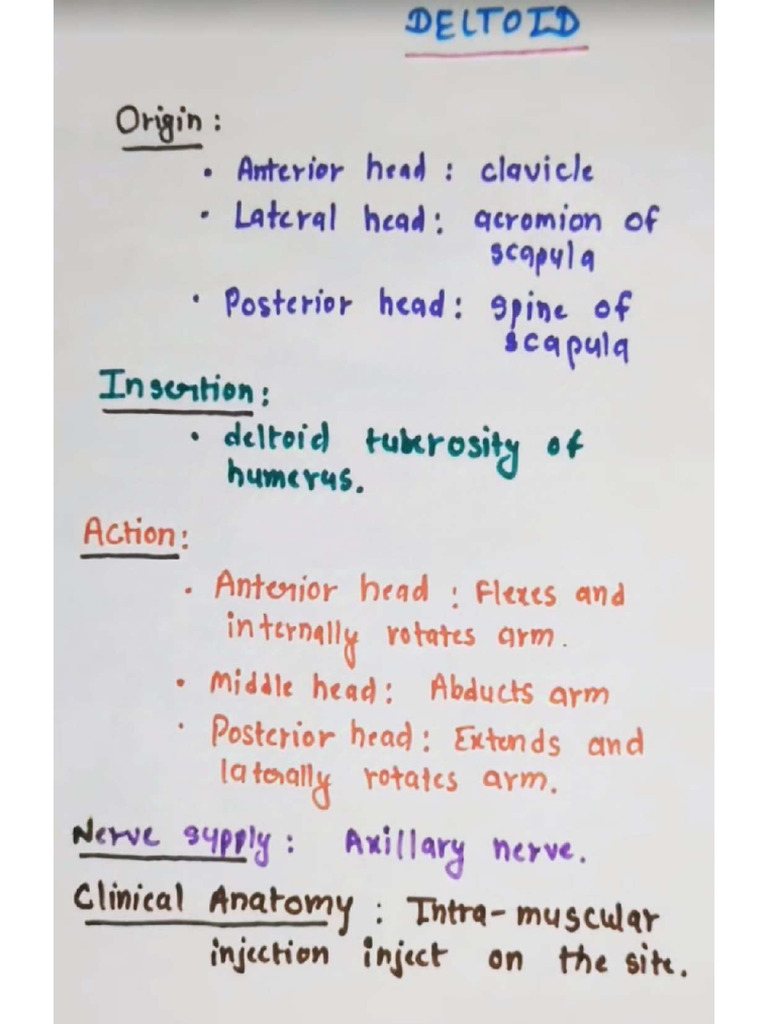 DELTOID
Origin:
• Anterior head: clavicle
• Lateral head: acromion of
scapula
• Posterior head: spine of
scapula
Insertion:
• deltoid tuberosity of
humerus.
Action:
• Anterior head: Flexes and
internally rotates arm.
• Middle head: Abducts arm
• Posterior head: Extends and
laterally rotates arm.
Nerve supply: Axillary nerve.
Clinical Anatomy: Intra-muscular
injection inject on the site.